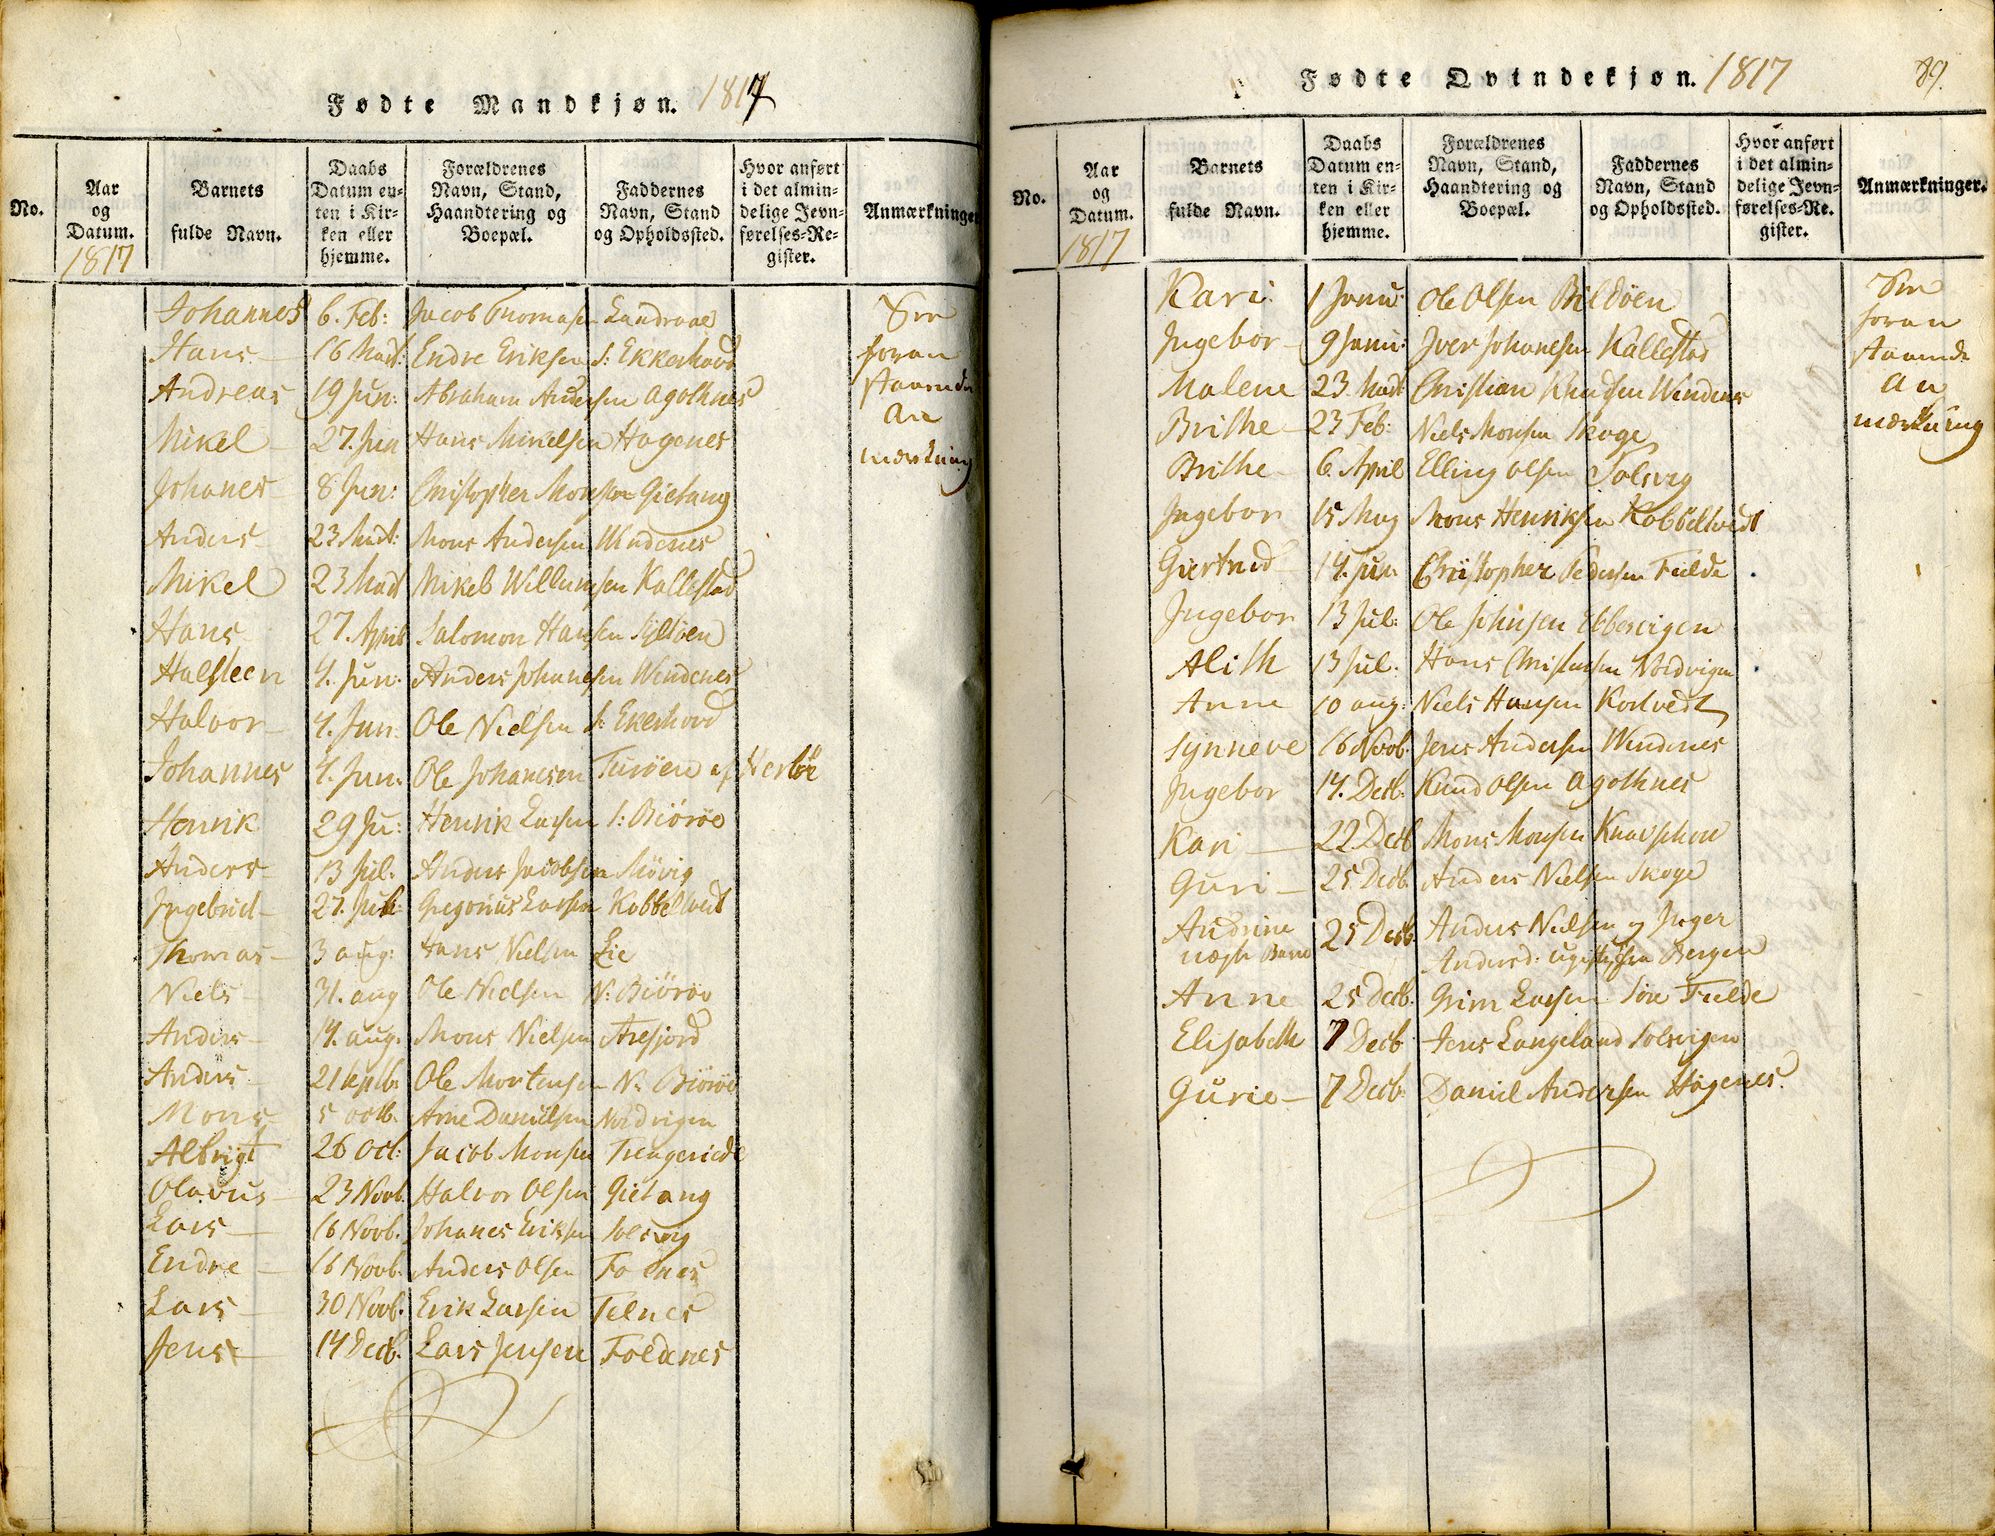 Fødte Mandkjøn. 1817
No.
Aar og Datum. 1817
Barnets fulde Navn.
Daabs Datum enten i Kirken eller hjemme.
Forældrenes Navn, Stand, Haandtering og Boepæl.
Faddernes Navn, Stand og Opholdssted.
Hvor anført i det almindelige Jevnførelses-Register.
Anmærkninger
Johannes 6. Feb: Jacob Thomasen Landraae
Hans 16 Mart: Endre Eriksen S: Ekkerhovd
Andreas 19 Jan: Abraham Andersen Agothnes
Mikel 27. Jan Hans Mikelsen Hagenes
Johanes 8 Jun: Christopher Monsen Gietang
Anders 23 Mart: Mons Andersen Windenes
Mikel 23 Mart Mikel Willumsen Kallestad
Hans 27. April Salomon Hansen Syltøen
Halsteen 4. Jun. Anders Johanesen Windenes
Halvor 4. Jun. Ole Nielsen S: Ekerhovd
Johannes 4. Jun. Ole Johanesen Turøen af Herløe
Henrik 29 Ju: Henrik Larsen S: Biørøe
Anders 13 Jul: Anders Jacobsen Møvig
Ingebrid 27. Jul: Gregorius Larsen Kobbeltvedt
Thomas 3 aug: Hans Nielsen Lie
Niels 31. aug Ole Nielsen N: Biørøe
Anders 14. aug. Mons Nielsen Arefjord
Anders 21 septb. Ole Mortensen N: Biørøe
Mons 5 octb. Arne Danielsen Nordvigen
Albrigt 26 Oct: Jacob Monsen Trengeriede
Olavus 23 Novb. Halvor Olsen Gietang
Lars 16 Novb. Johanes Eriksen Solsvig
Endre 16 Novb. Anders Olsen Folnes
Lars 30 Novb. Erik Larsen Telnes
Jens 14 Decb. Lars Jensen Foldenes
See
foran
staaende
An
mærkning
Fødte Qvindekjøn. 1817
89.
No.
Aar og Datum. 1817
Barnets fulde Navn.
Daabs Datum enten i Kirken eller hjemme.
Forældrenes Navn, Stand, Haandtering og Boepæl.
Faddernes Navn, Stand og Opholdssted.
Hvor anført i det almindelige Jevnførelses-Re. gister.
Anmærkninger.
Kari 1 Janu: Ole Olsen Bildøen
Ingebor 9 Janu: Iver Johanesen Kallestad
Malene 23 Mart Christian Knudsen Windenes
Brithe 23 Feb: Niels Monsen Skoge
Brithe 6. April Elling Olsen Solsvig
Ingebor 15 May Mons Henriksen Kobbeltvedt
Giertrud 14. Jun. Christopher Pedersen Fielde
Ingebor 13 Jul: Ole Johnsen Ebbesvigen
Alith 13 Jul. Hans Christensen Nordvigen
Anne 10 aug: Niels Hansen Kortvedt
Synneve 16 Novb. Jens Andersen Windenes
Ingebor 14. Decb. Knud Olsen Agothnes
Kari 22 Decb Mons Monsen Knapschou
Guri 25 Decb. Anders Nielsen Skoge
Andrine 25 Decb. Anders Nielsen og Inger
uægte Barn Andersd: ugifte fra Bergen
Anne 25 Decb. Grim Larsen Søre Fielde
Elisabeth 7 Decb Jens Langeland Solsvigen
Gurie 7 Decb. Daniel Andersen Høgenes.
See
foran
staaende
An
mærkning